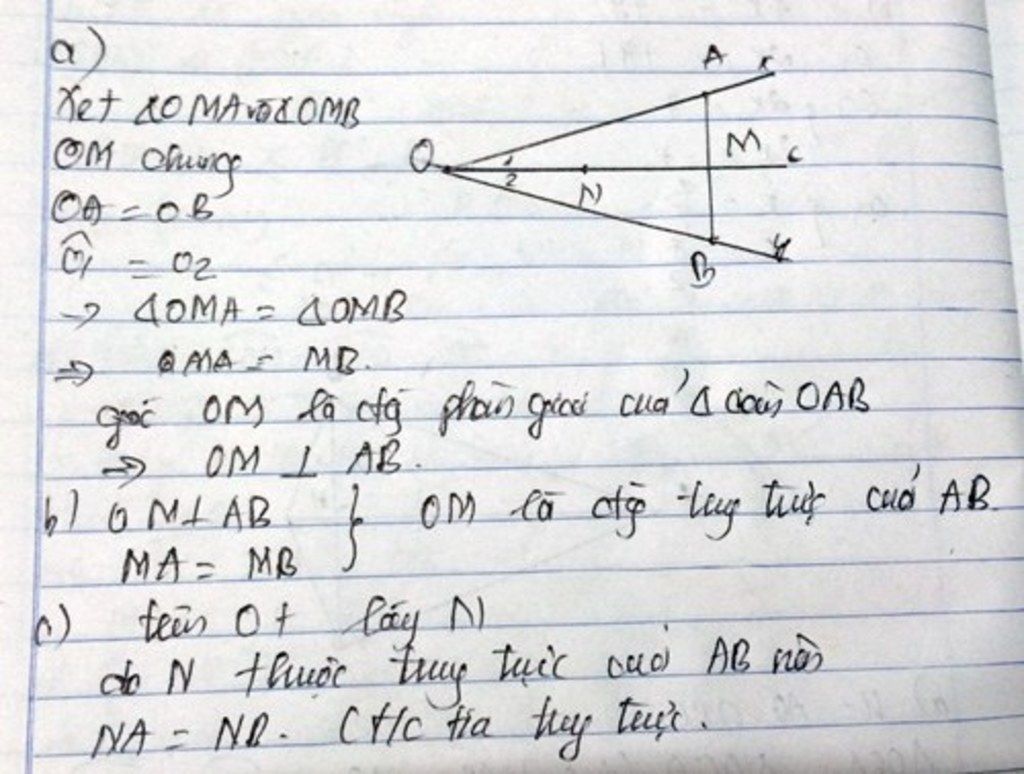 a)
Xét ΔOMA và ΔOMB
OM chung
OA = OB
Ô1 = O2
→ ΔOMA = ΔOMB
⇒ MA = MB.
góc OM là đg phân giác của Δ cân OAB
⇒ OM ⊥ AB.
b) OM⊥AB } OM là đg trung trực của AB.
MA = MB
c) trên Ot lấy N
do N thuộc trung trực của AB nên
NA = NB. (t/c tia trung trực.
A x
O 1 M t
2 N
B y